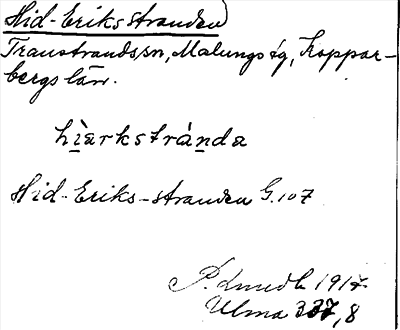 Hid-Eriksstranden)
Transtrands sn, Malungs tg, Koppar-
bergs län.
hìarkstrànda
Hid-Eriks-stranden G. 107
P. Lundh 1917.
Ulma 337, 8